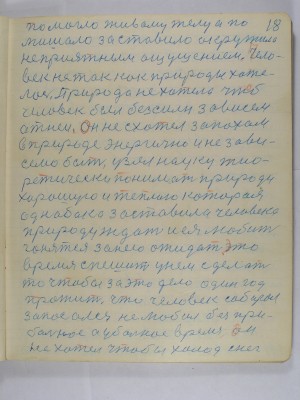 18
помогло живому телу а по
мешало заставило окружило
неприятным ощущением. Чело-
век не так как природа хоте-
лось. Природа не хотела чтоб
человек был бессилен зависем
от неи. Он несхотел запахом
в природе энергично и не зави-
симо быть, узял науку тио-
ретически понимат природу
хорошую и теплаю которая
однобако заставила человека
природу ждат и ея любит
гонятся за нею ожидат, это
время спешит у нем сделат
то чтобы за это дело один год
прожит. что человек собрал
запас а лез не любил без при-
балное а убалное время он
не хотел чтобы холод снег